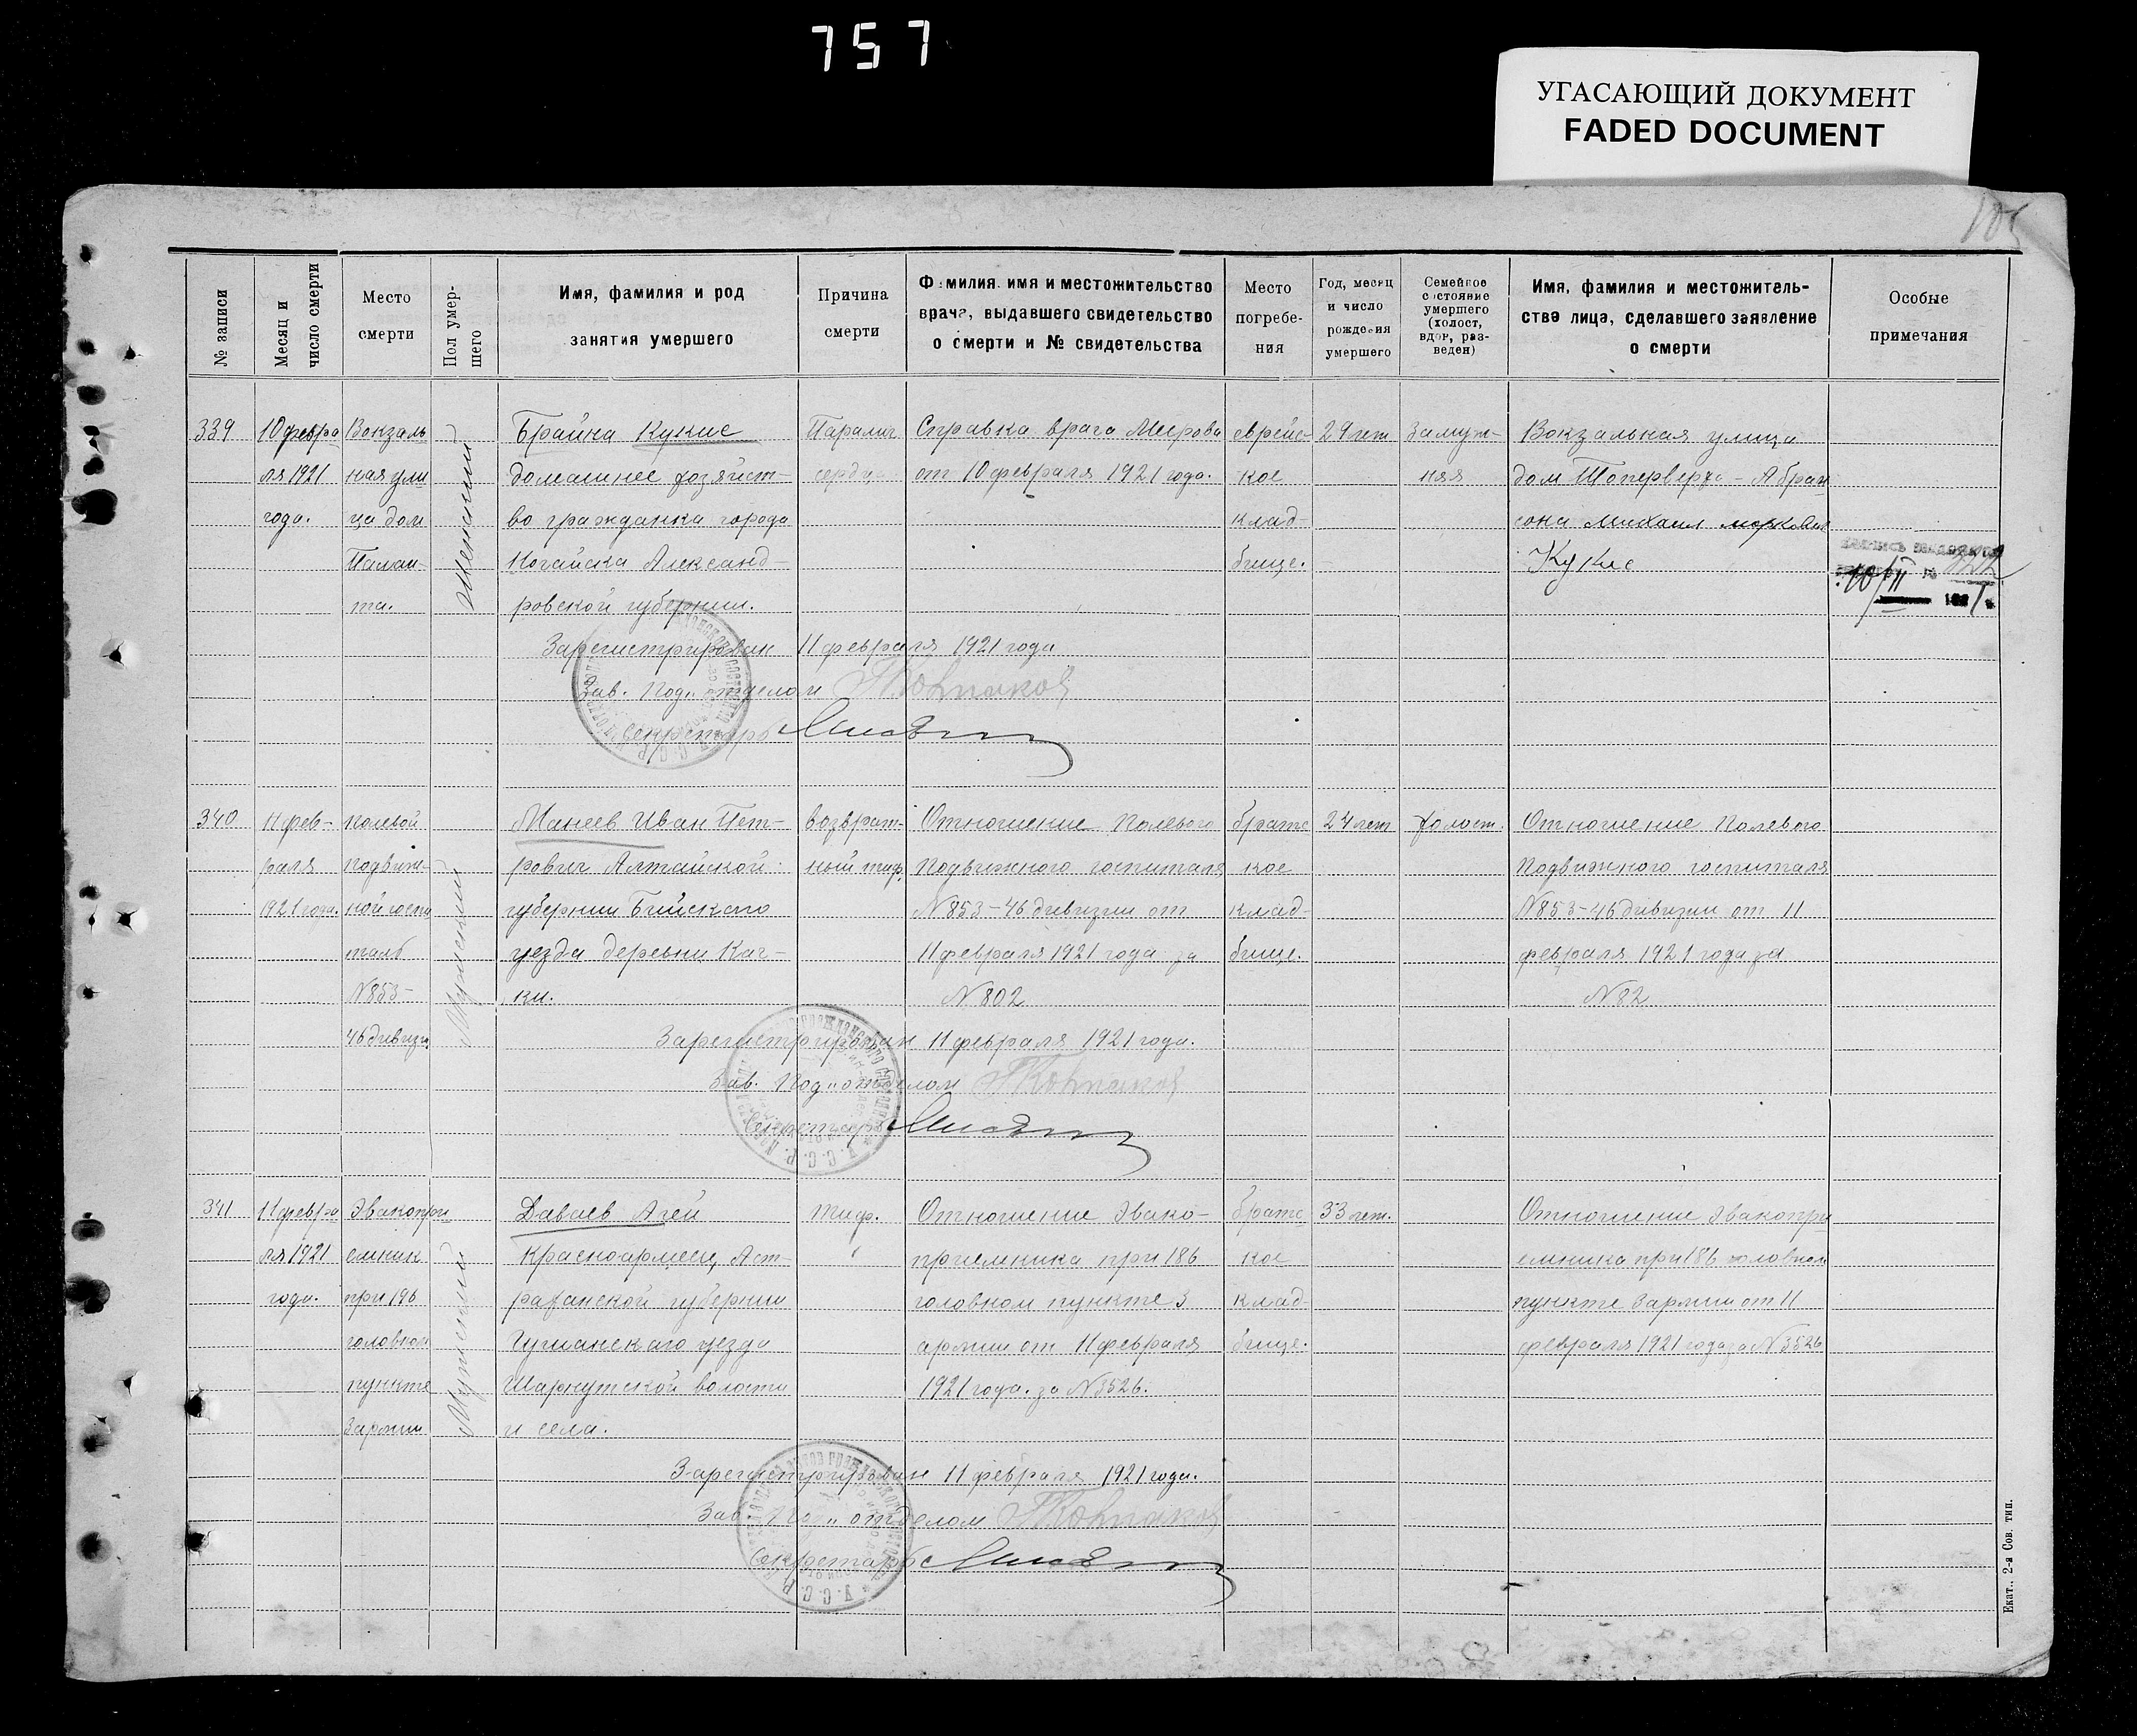 757
УГАСАЮЩИЙ ДОКУМЕНТ
FADED DOCUMENT
105
№ записи
Месяц и
число смерти
Место
смерти
Пол умер-
шего
Имя, фамилия и род
занятия умершего
Причина
смерти
Фамилия имя и местожительство
врача, выдавшего свидетельство
о смерти и № свидетельства
Место
погребе-
ния
Год, месяц
и число
рождения
умершего
Семейное
состояние
умершего
(холост,
вдов, раз-
веден)
Имя, фамилия и местожитель-
ство лица, сделавшего заявление
о смерти
Особые
примечания
339
10 февра
ля 1921
года.
Вокзаль
ная ули
ца дом
Женский
Брайна Кукис
домашнее хозяйст-
во гражданка города
Александ-
ровской губернии.
Паралич
сердца
Справка врача Меерова
от 10 февраля 1921 года.
еврейс-
кое
клад-
бище.
29 лет
Замуж-
няя
Вокзальная улица
дом
Михаил
Кукис
10/II
Зарегистрирован 11 февраля 1921 года
Зав. Под. отделом
Секретарь
340
11 фев-
раля
1921 года.
полевой
подвиж-
ной госпи
таль
№ 853-
46 дивизи
Мужской
Манеев Иван Пет-
рович Алтайской
губернии Бийского
уезда деревни Кач-
ки.
возврат-
ный тиф.
Отношение Полевого
Подвижного госпиталя
№ 853-46 дивизии от
11 февраля 1921 года за
№ 802
братс
кое
клад-
бище.
24 лет
холост.
Отношение Полевого
Подвижного госпиталя
№ 853-46 дивизии от 11
февраля 1921 года за
№ 82
Зарегистрирован 11 февраля 1921 года.
Зав. Под „ отделом
Секретарь
341
11 февра
ля 1921
года.
Эвакопри
емник
при 196
головном
пункте
3 армии
Мужской
Даваев Агей
красноармеец, Аст-
раханской губернии
уезда
волости
и села.
тиф.
Отношение Эвако-
приемника при 186
головном пункте 3
армии от 11 февраля
1921 года. за № 3526.
братс
кое
клад-
бище.
33 лет.
Отношение Эвакопри
емника при 186 головном
пункте 3 армии от 11
февраля 1921 года за № 3526
Зарегистрирован 11 февраля 1921 года.
Зав. Под „ отделом
Секретарь
Екат., 2-я Сов. тип.